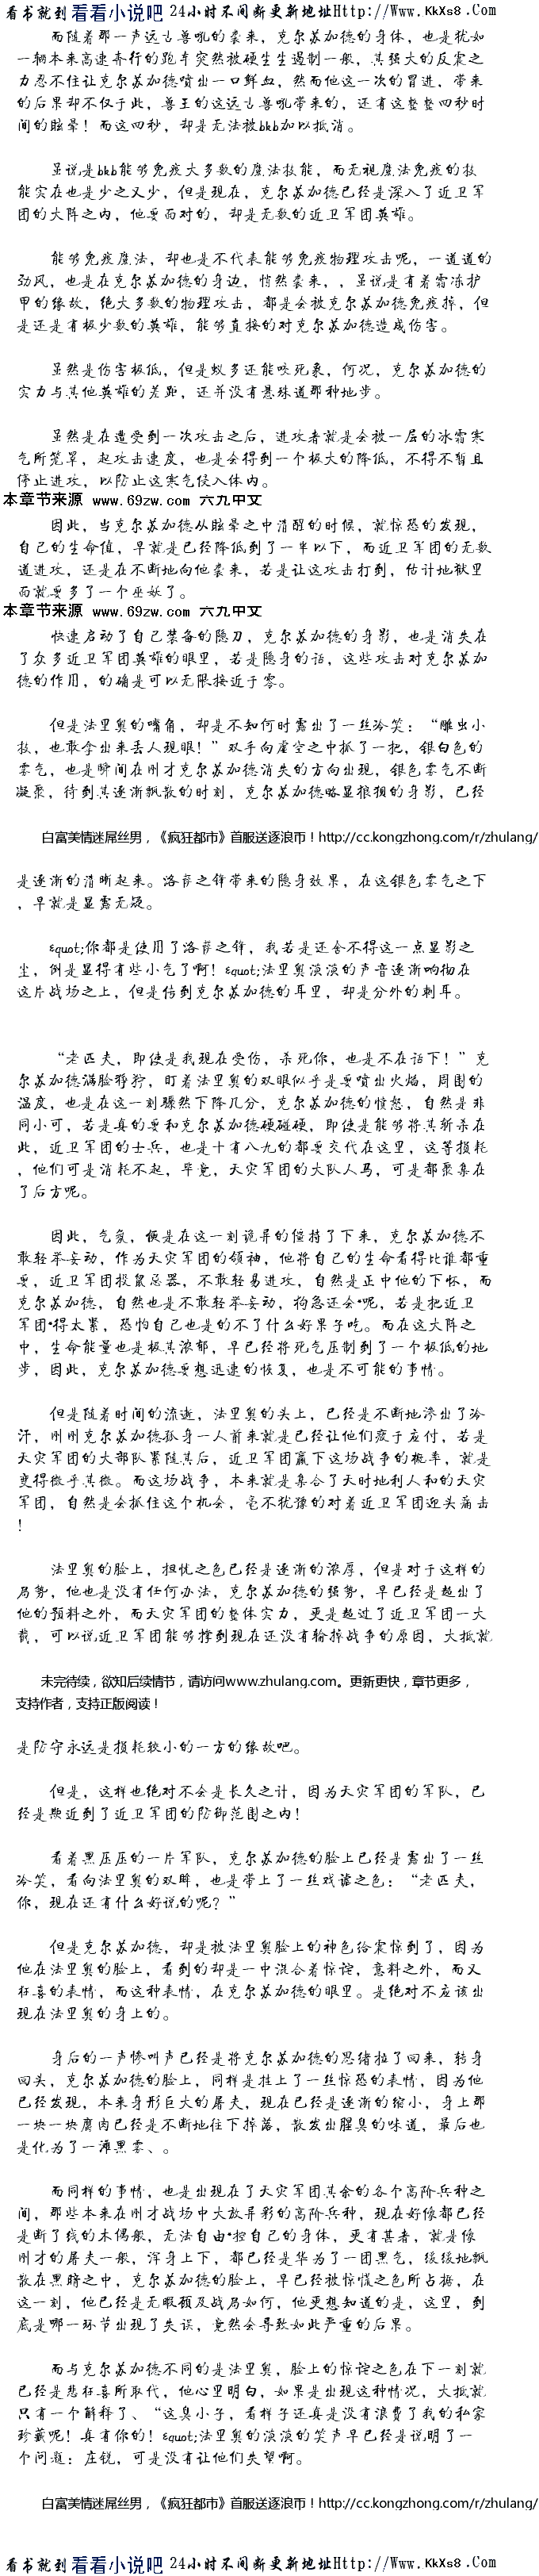 看书就到 看看小说吧 24小时不间断更新地址Http://Www.KkXs8.Com
而随着那一声远古兽吼的袭来，克尔苏加德的身体，也是犹如
一辆本来高速奔行的跑车突然被硬生生遏制一般，其强大的反震之
力忍不住让克尔苏加德喷出一口鲜血，然而他这一次的冒进，带来
的后果却不仅于此，兽王的这远古兽吼带来的，还有这整整四秒时
间的眩晕！而这四秒，却是无法被bkb加以抵消。
虽说是bkb能够免疫大多数的魔法技能，而无视魔法免疫的技
能实在也是少之又少，但是现在，克尔苏加德已经是深入了近卫军
团的大阵之内，他要面对的，却是无数的近卫军团英雄。
能够免疫魔法，却也是不代表能够免疫物理攻击呢，一道道的
劲风，也是在克尔苏加德的身边，悄然袭来，，虽说是有着霜冻护
甲的缘故，绝大多数的物理攻击，都是会被克尔苏加德免疫掉，但
是还是有极少数的英雄，能够直接的对克尔苏加德造成伤害。
虽然是伤害极低，但是蚁多还能咬死象，何况，克尔苏加德的
实力与其他英雄的差距，还并没有悬殊道那种地步。
虽然是在遭受到一次攻击之后，进攻者就是会被一层的冰霜寒
气所笼罩，起攻击速度，也是会得到一个极大的降低，不得不暂且
停止进攻，以防止这寒气侵入体内。
本章节来源 www.69zw.com 六九中文
因此，当克尔苏加德从眩晕之中清醒的时候，就惊恐的发现，
自己的生命值，早就是已经降低到了一半以下，而近卫军团的无数
道进攻，还是在不断地向他袭来，若是让这攻击打到，估计地狱里
面就要多了一个巫妖了。
本章节来源 www.69zw.com 六九中文
快速启动了自己装备的隐刀，克尔苏加德的身影，也是消失在
了众多近卫军团英雄的眼里，若是隐身的话，这些攻击对克尔苏加
德的作用，的确是可以无限接近于零。
但是法里奥的嘴角，却是不知何时露出了一丝冷笑：“雕虫小
技，也敢拿出来丢人现眼！”双手向虚空之中抓了一把，银白色的
雾气，也是瞬间在刚才克尔苏加德消失的方向出现，银色雾气不断
凝聚，待到其逐渐飘散的时刻，克尔苏加德略显狼狈的身影，已经
白富美情迷屌丝男，《疯狂都市》首服送逐浪币！http://cc.kongzhong.com/r/zhulang/
是逐渐的清晰起来。洛萨之锋带来的隐身效果，在这银色雾气之下
，早就是显露无疑。
&quot;你都是使用了洛萨之锋，我若是还舍不得这一点显影之
尘，倒是显得有些小气了啊！&quot;法里奥淡淡的声音逐渐响彻在
这片战场之上，但是传到克尔苏加德的耳里，却是分外的刺耳。
“老匹夫，即使是我现在受伤，杀死你，也是不在话下！”克
尔苏加德满脸狰狞，盯着法里奥的双眼似乎是要喷出火焰，周围的
温度，也是在这一刻骤然下降几分，克尔苏加德的愤怒，自然是非
同小可，若是真的要和克尔苏加德硬碰硬，即使是能够将其斩杀在
此，近卫军团的士兵，也是十有八九的都要交代在这里，这等损耗
，他们可是消耗不起，毕竟，天灾军团的大队人马，可是都聚集在
了后方呢。
因此，气氛，便是在这一刻诡异的僵持了下来，克尔苏加德不
敢轻举妄动，作为天灾军团的领袖，他将自己的生命看得比谁都重
要，近卫军团投鼠忌器，不敢轻易进攻，自然是正中他的下怀，而
克尔苏加德，自然也是不敢轻举妄动，狗急还会•呢，若是把近卫
军团•得太紧，恐怕自己也是的不了什么好果子吃。而在这大阵之
中，生命能量也是极其浓郁，早已经将死气压制到了一个极低的地
步，因此，克尔苏加德要想迅速的恢复，也是不可能的事情。
但是随着时间的流逝，法里奥的头上，已经是不断地渗出了冷
汗，刚刚克尔苏加德孤身一人前来就是已经让他们疲于应付，若是
天灾军团的大部队紧随其后，近卫军团赢下这场战争的概率，就是
变得微乎其微。而这场战争，本来就是集合了天时地利人和的天灾
军团，自然是会抓住这个机会，毫不犹豫的对着近卫军团迎头痛击
！
法里奥的脸上，担忧之色已经是逐渐的浓厚，但是对于这样的
局势，他也是没有任何办法，克尔苏加德的强势，早已经是超出了
他的预料之外，而天灾军团的整体实力，更是超过了近卫军团一大
截，可以说近卫军团能够撑到现在还没有输掉战争的原因，大抵就
未完待续，欲知后续情节，请访问www.zhulang.com。更新更快，章节更多，
支持作者，支持正版阅读！
是防守永远是损耗较小的一方的缘故吧。
但是，这样也绝对不会是长久之计，因为天灾军团的军队，已
经是欺近到了近卫军团的防御范围之内！
看着黑压压的一片军队，克尔苏加德的脸上已经是露出了一丝
冷笑，看向法里奥的双眸，也是带上了一丝戏谑之色：“老匹夫，
你，现在还有什么好说的呢？”
但是克尔苏加德，却是被法里奥脸上的神色给震惊到了，因为
他在法里奥的脸上，看到的却是一中混合着惊诧，意料之外，而又
狂喜的表情，而这种表情，在克尔苏加德的眼里。是绝对不应该出
现在法里奥的身上的。
身后的一声惨叫声已经是将克尔苏加德的思绪拉了回来，转身
回头，克尔苏加德的脸上，同样是挂上了一丝惊恐的表情，因为他
已经发现，本来身形巨大的屠夫，现在已经是逐渐的缩小，身上那
一块一块腐肉已经是不断地往下掉落，散发出腥臭的味道，最后也
是化为了一滩黑雾、。
而同样的事情，也是出现在了天灾军团其余的各个高阶兵种之
间，那些本来在刚才战场中大放异彩的高阶兵种，现在好像都已经
是断了线的木偶般，无法自由•控自己的身体，更有甚者，就是像
刚才的屠夫一般，浑身上下，都已经是华为了一团黑气，缓缓地飘
散在黑暗之中，克尔苏加德的脸上，早已经被惊慌之色所占据，在
这一刻，他已经是无暇顾及战局如何，他更想知道的是，这里，到
底是哪一环节出现了失误，竟然会导致如此严重的后果。
而与克尔苏加德不同的是法里奥，脸上的惊诧之色在下一刻就
已经是悲狂喜所取代，他心里明白，如果是出现这种情况，大抵就
只有一个解释了、“这臭小子，看样子还真是没有浪费了我的私家
珍藏呢！真有你的！&quot;法里奥的淡淡的笑声早已经是说明了一
个问题：庄锐，可是没有让他们失望啊。
白富美情迷屌丝男，《疯狂都市》首服送逐浪币！http://cc.kongzhong.com/r/zhulang/
看书就到 看看小说吧 24小时不间断更新地址Http://Www.KkXs8.Com